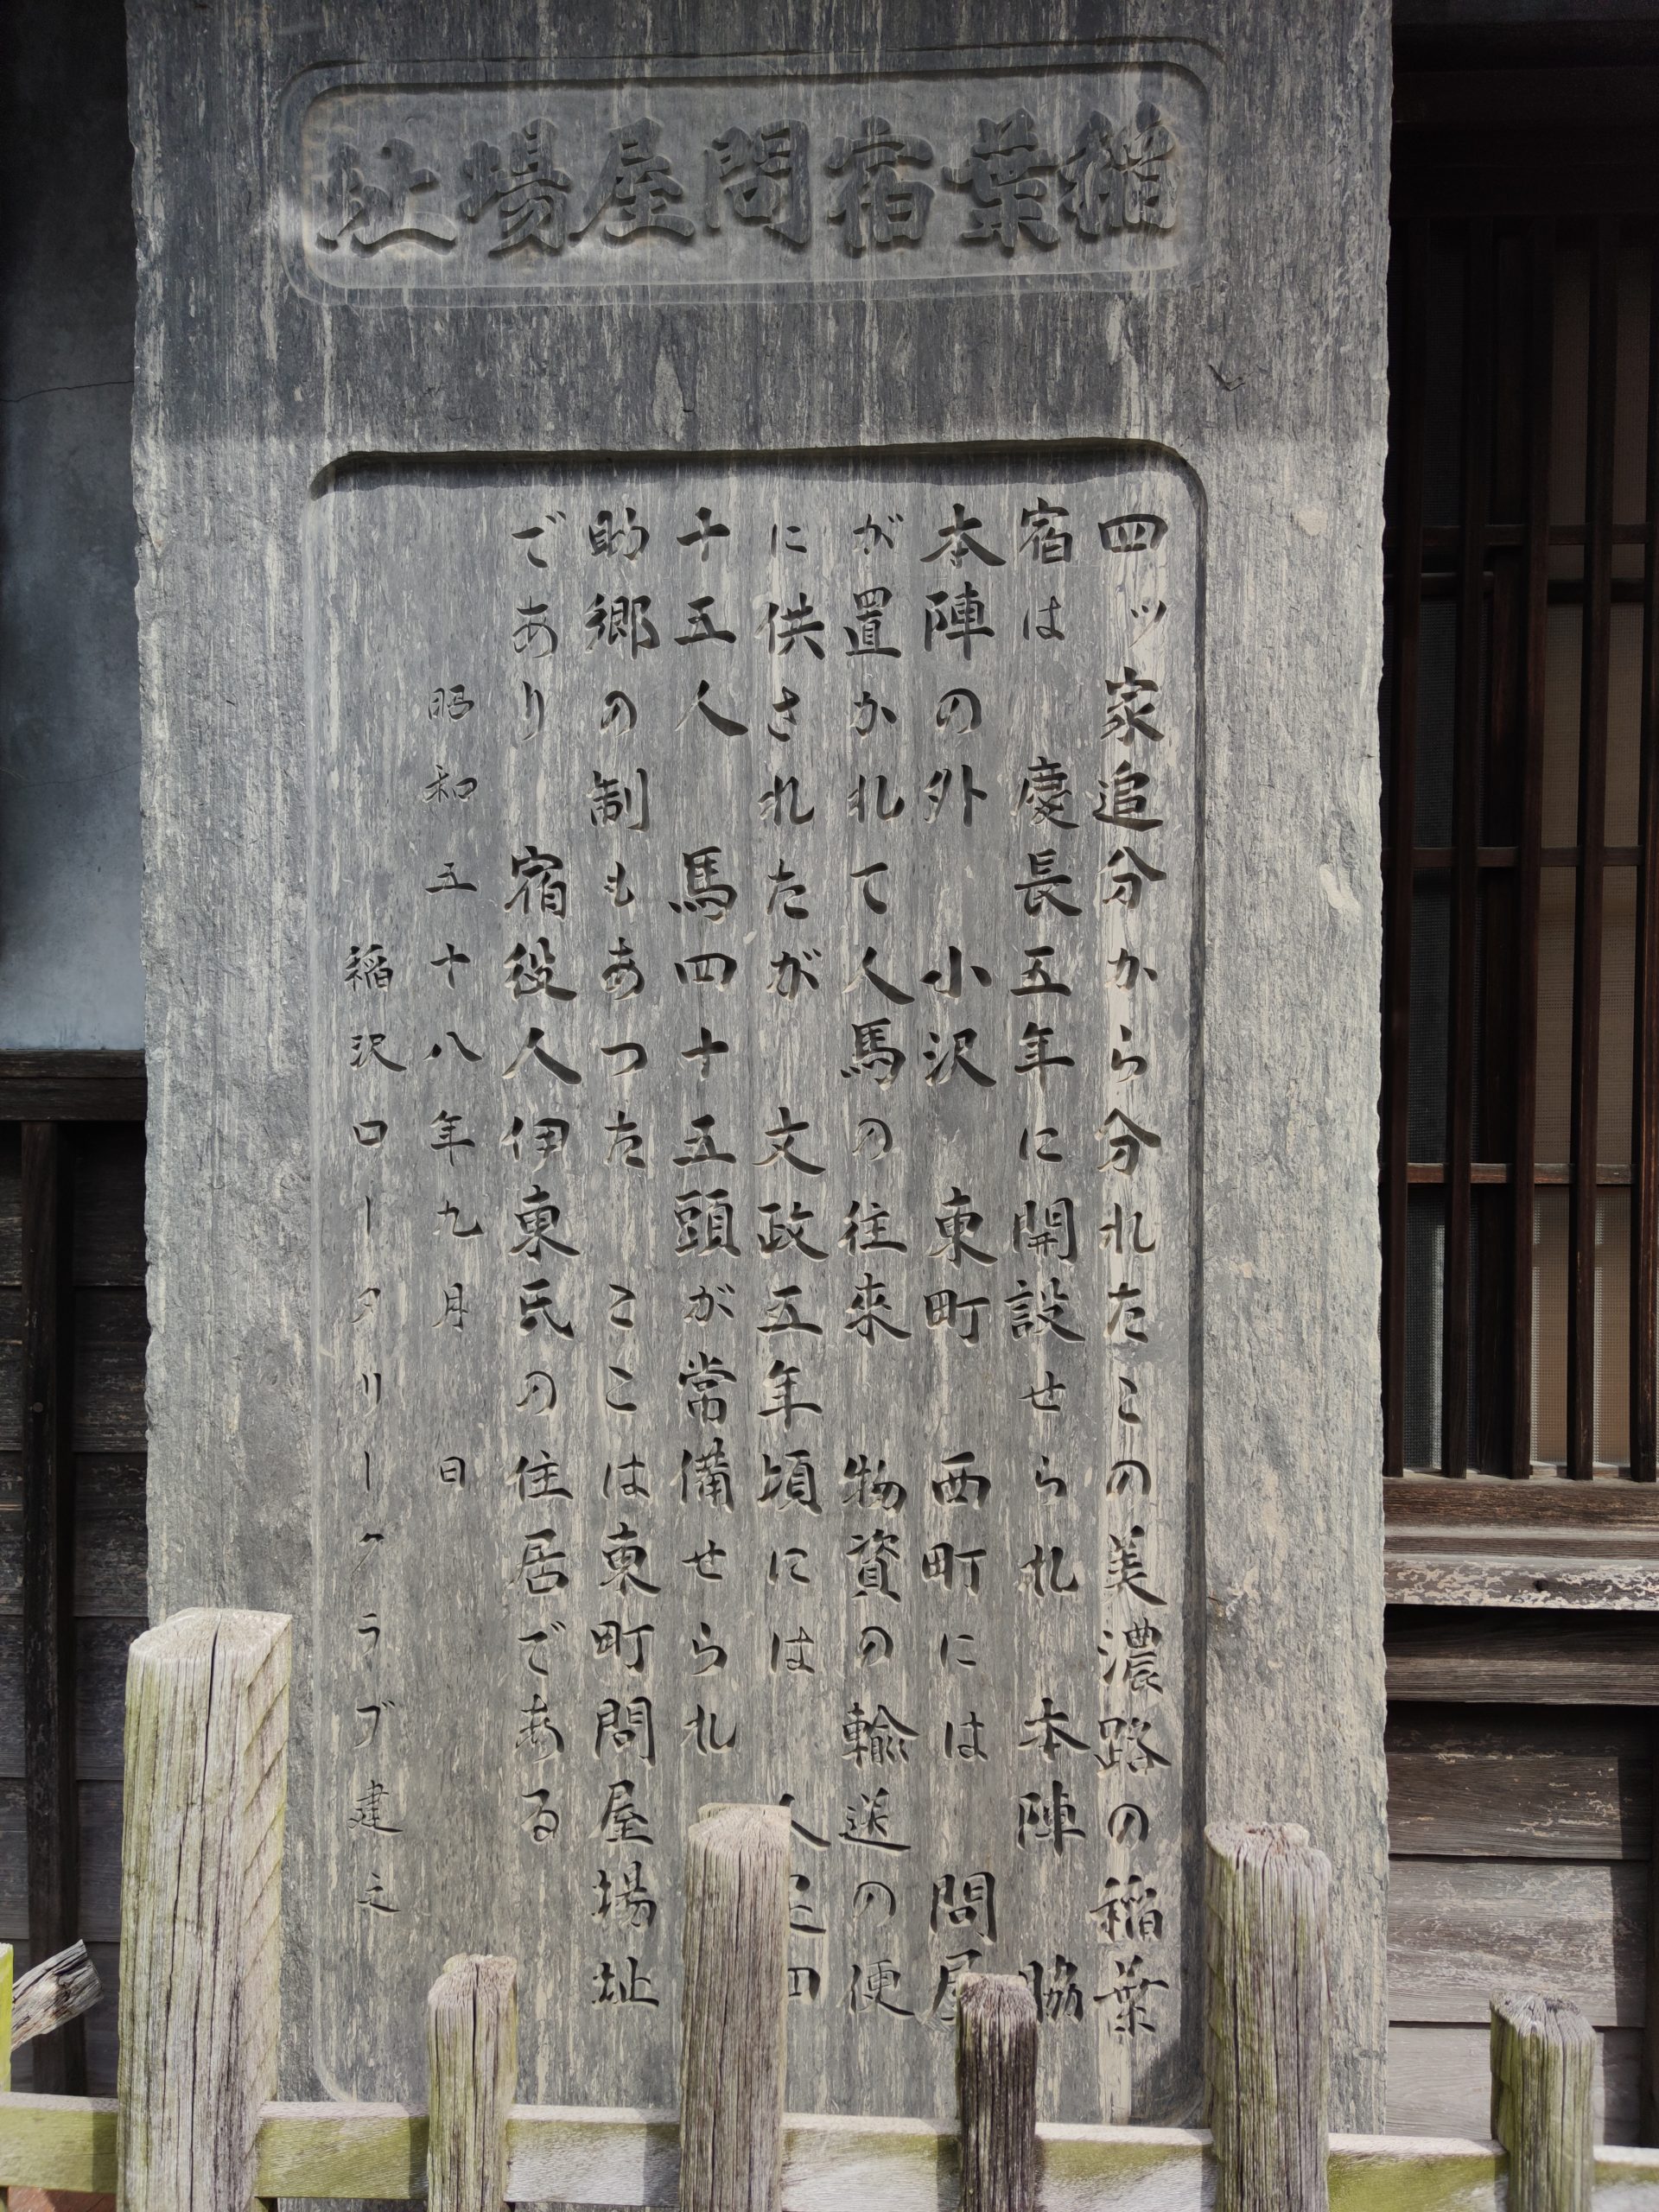 稲葉宿問屋場址
四ッ家追分から分れたこの美濃路の稲葉
宿は 慶長五年に開設せられ 本陣 脇
本陣の外 小沢 東町 西町には 問屋
が置かれて人馬の往来 物資の輸送の便
に供されたが 文政五年頃には 人足四
十五人 馬四十五頭が常備せられ
助郷の制もあつた ここは東町問屋場址
であり 宿役人伊東氏の住居である
昭和五十八年九月 日
稲沢ロータリークラブ建之